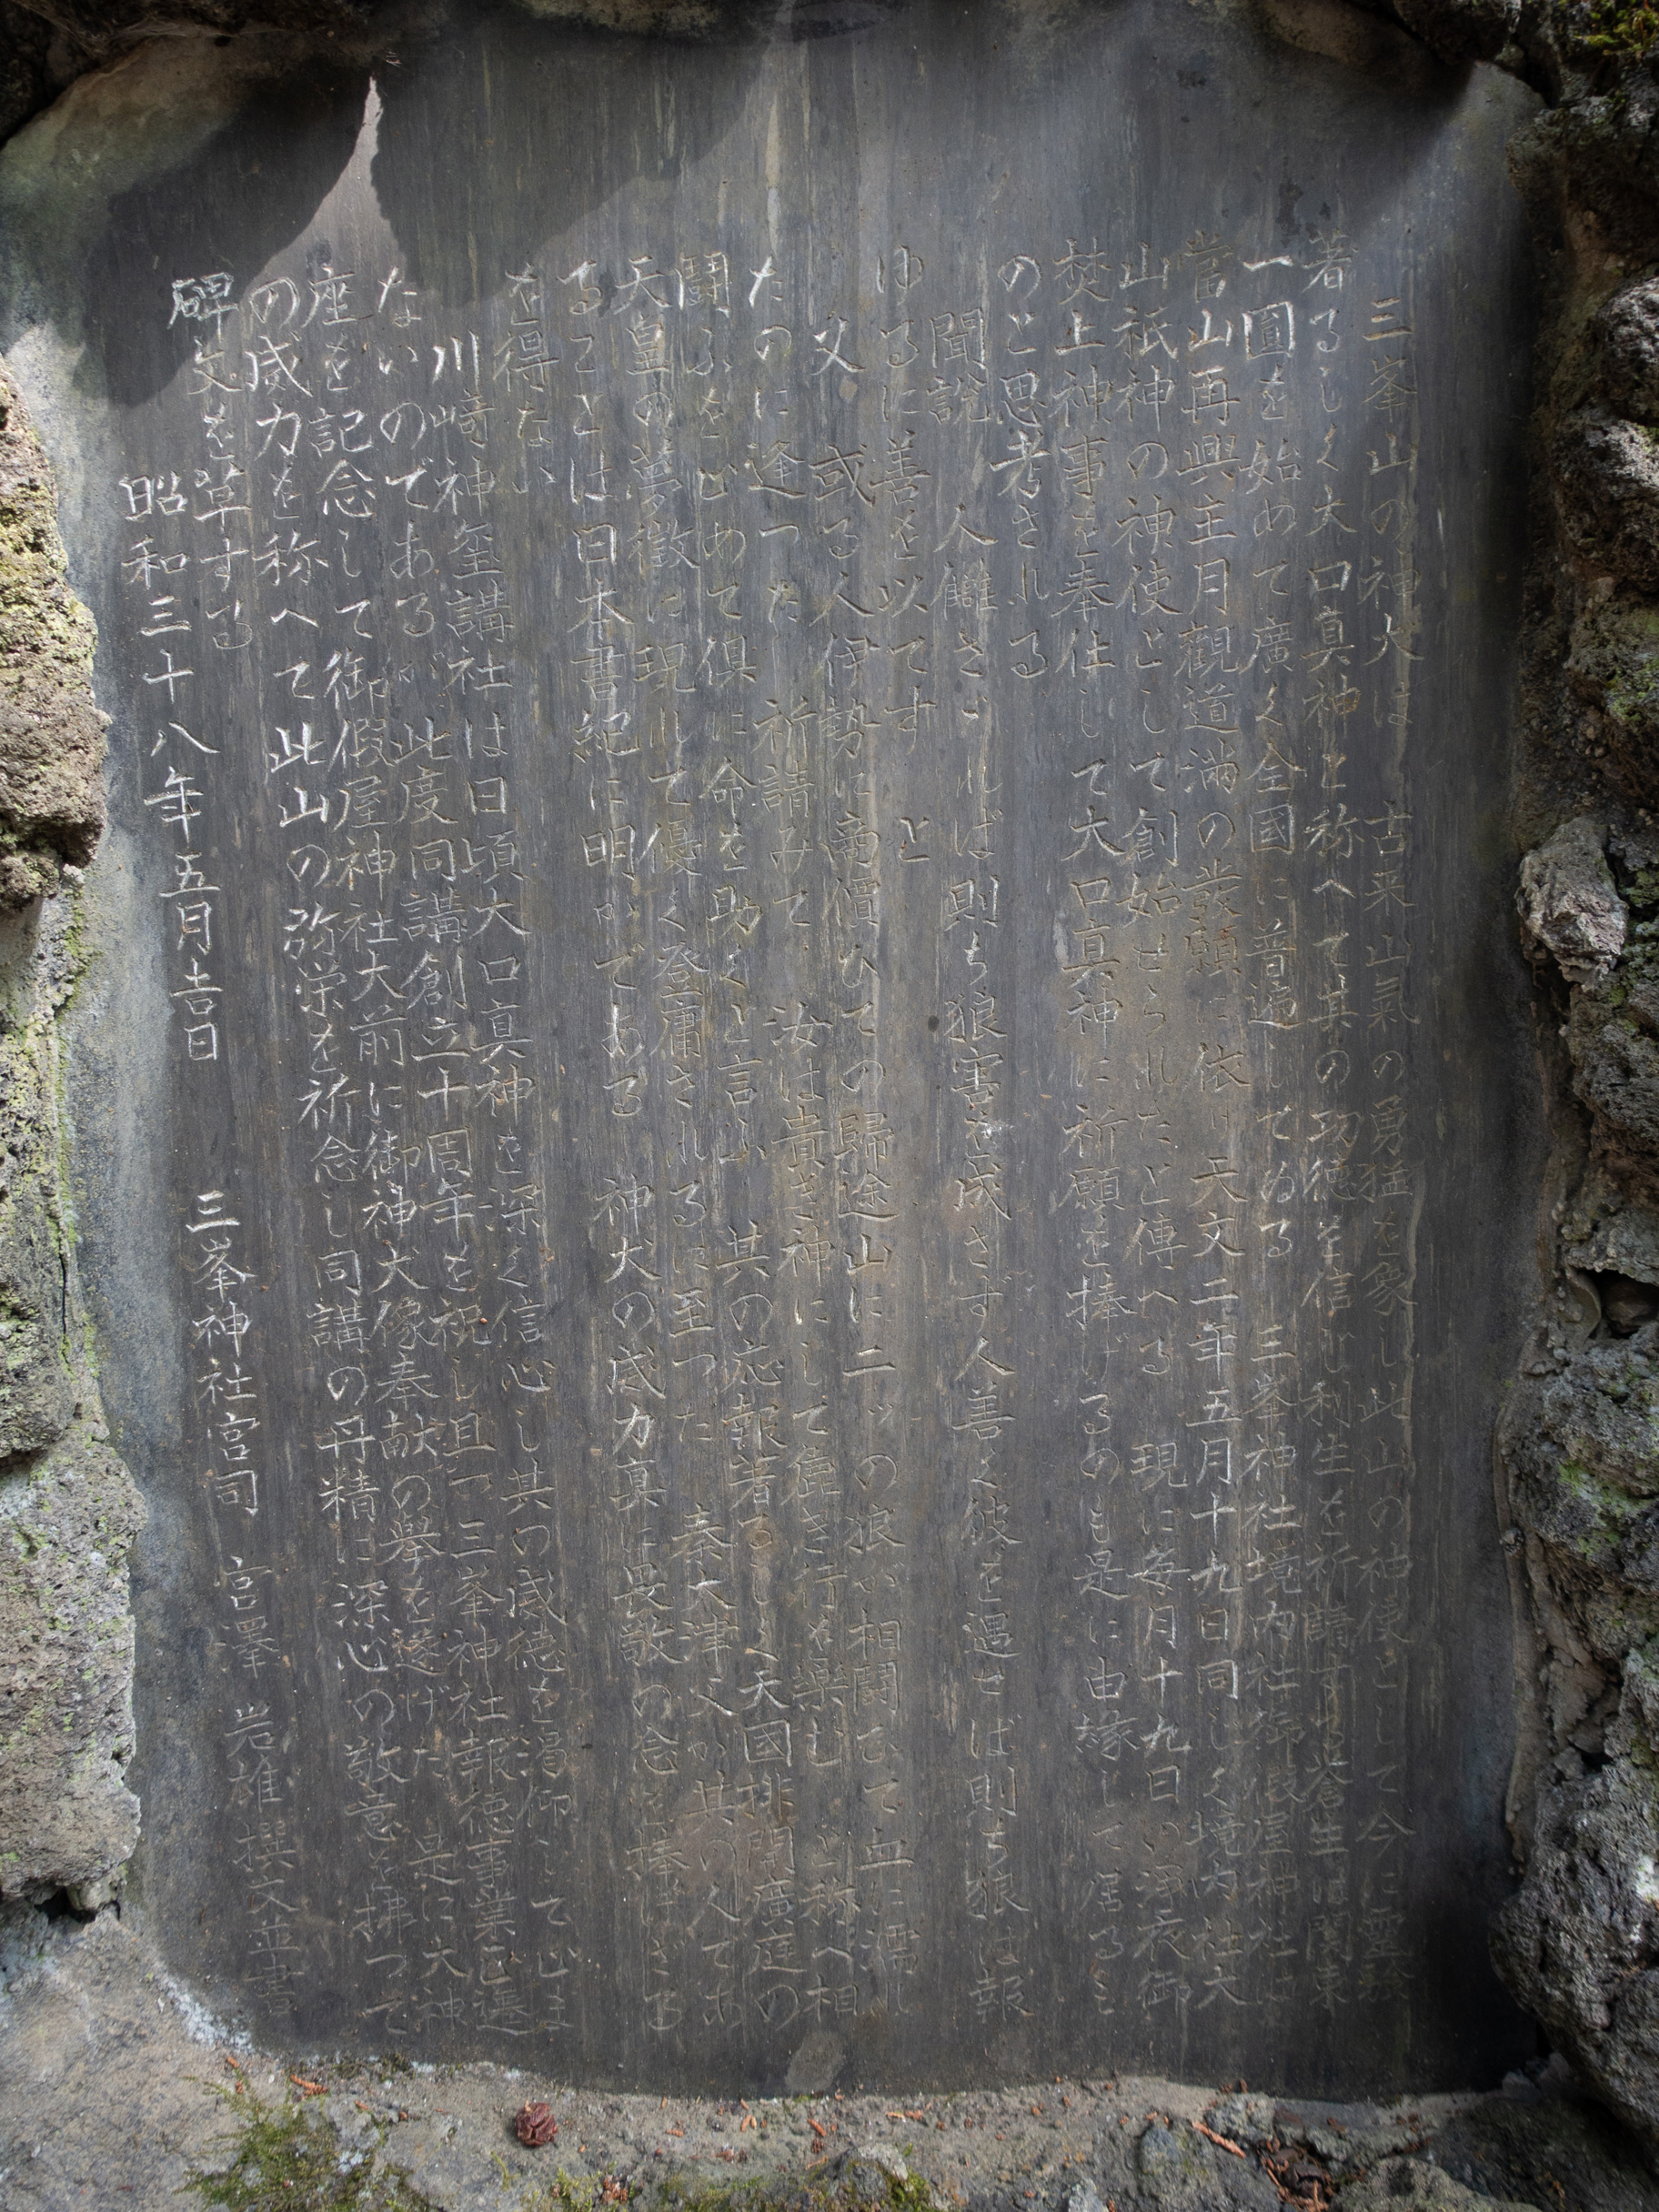 三峯山の神犬は 古来山氣の勇猛を象し此山の神使として今に霊験
著るしく大口真神と称へて其の功徳を信じ利生を祈請する蒼生は関東
一圓を始めて廣く全國に普遍してゐる 三峯神社境内社御假屋神社は
當山再興主月観道満の發願に依り天文二年五月十九日同じく境内社大
山祇神の神使として創始せられたと傳へる 現に毎月十九日 浄衣御
焚上神事を奉仕して大口真神に祈願を捧げるのも是に由縁して居るも
のと思考される
聞説 人讎さゞれば則ち狼害を成さず人善く彼を遇せば則ち狼は報
ゆるに善を以てす と
又 或る人伊勢に商價ひての歸途山に二ッの狼が相闘ひて血に濡れ
たのに逢つた 祈請みて 汝は貴き神にして麁き行を樂む と称へ相
闘ふをとゞめて倶に命を助くと言ふ 其の応報著るしく天國排開廣庭の
天皇の夢徴に現れて優く登庸されるに至つた 秦大津父が其の人であ
ることは日本書紀に明かである 神犬の威力真に畏敬の念を捧げざる
を得ない
川崎神玺講社は日頃大口真神を深く信心し其の威徳を渇仰して止ま
ないのであるが 此度同講創立十周年を祝し且つ三峯神社報徳事業已遷
座を記念して御假屋神社大前に御神犬像奉献の擧を遂げた 是に大神
の威力を称へて此山の弥栄を祈念し同講の丹精に深心の敬意を拂つて
碑文を草する
昭和三十八年五月吉日 三峯神社宮司 宮澤 岩雄 撰文並書